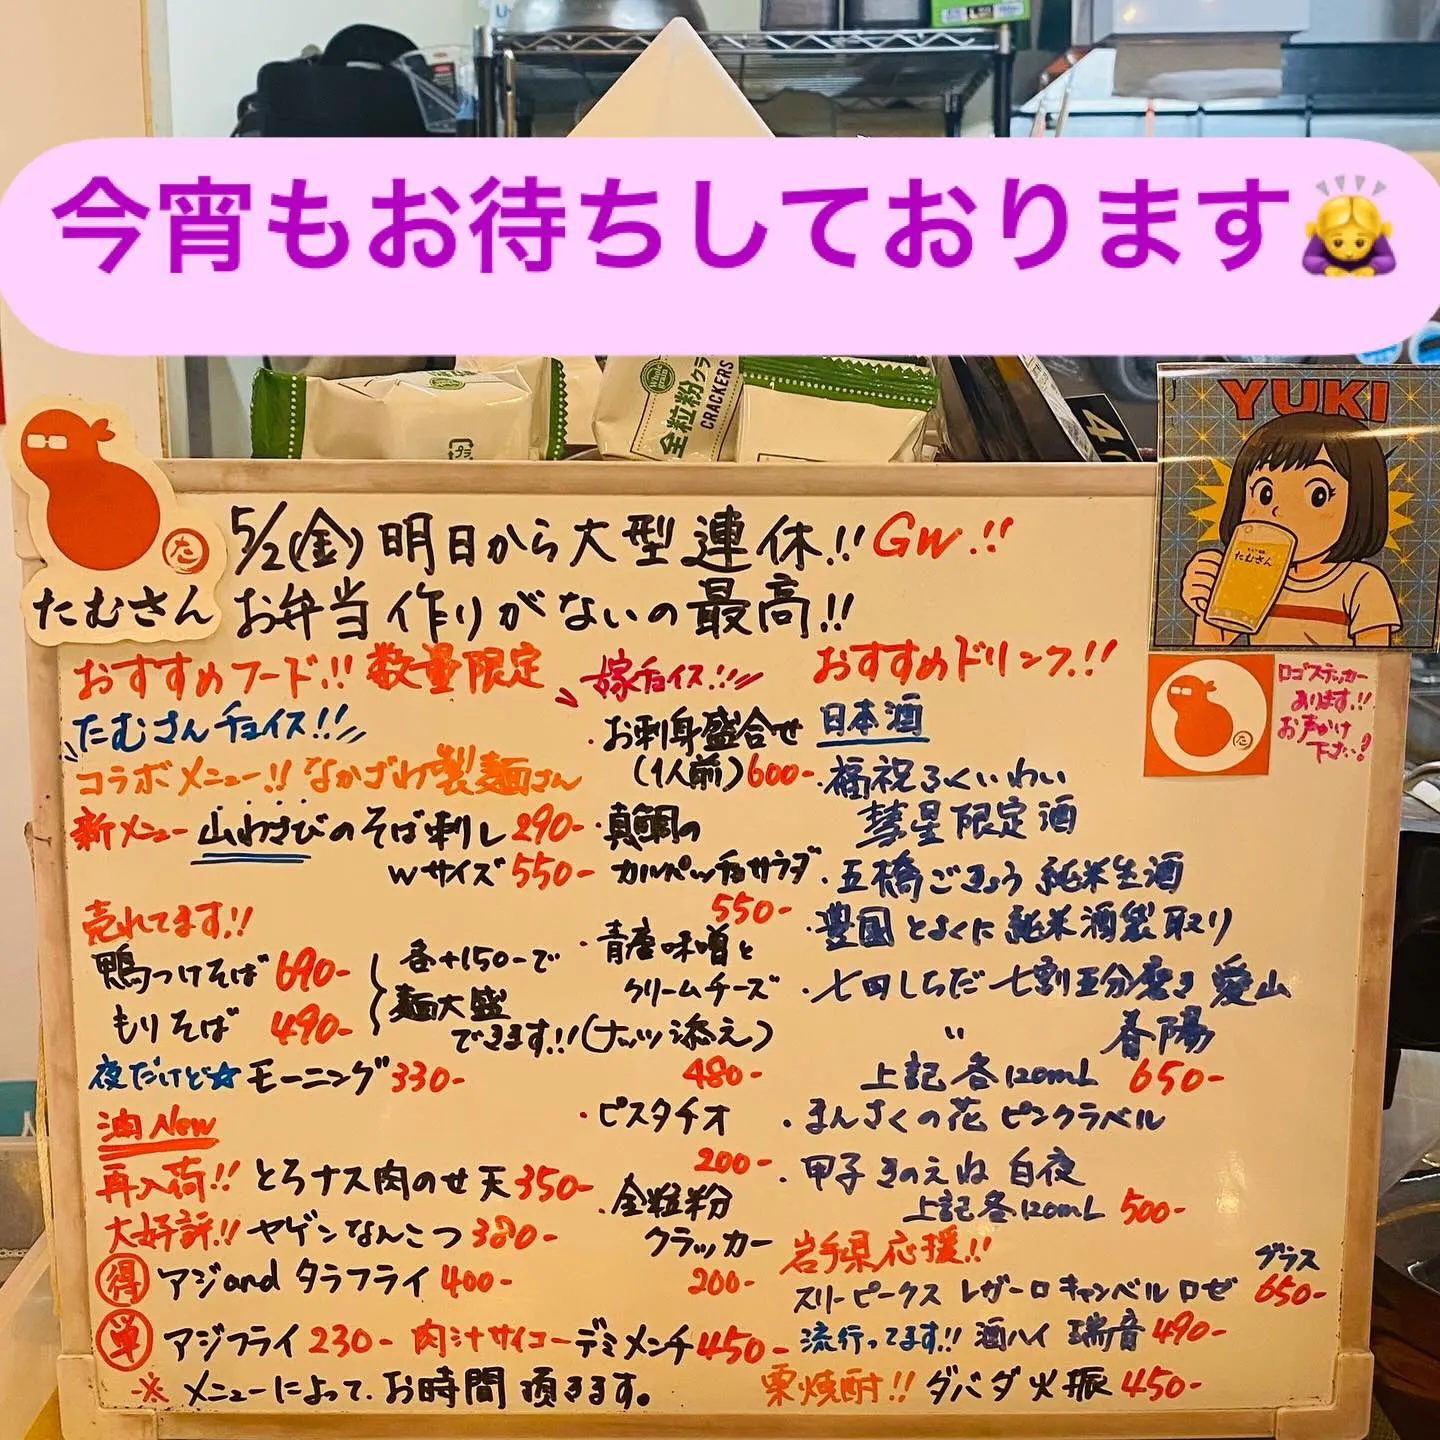 今宵もお待ちしております
全粒粉クラ
CRACKERS
YUKI
たむさん
た
たむさん
5/2(金)明日から大型連休!!GW.!!
お弁当作りがないの最高!!
おすすめフード!!数量限定
たむさんチョイス!!
コラボメニュー!!なかざわ製麺さん
新メニュー 山わさびのそば刺し 290-
Wサイズ 550-
売れてます!!
鴨つけそば 690-
もりそば 490-
各+150-で
麺大盛
できます!!
夜だけど☆モーニング 330-
油New
再入荷!! とろナス肉のせ天 350-
大好評!! ヤゲンなんこつ 380-
得 アジandタラフライ 400-
単 アジフライ 230- 肉汁サイコーデミメンチ 450-
※メニューによって、お時間頂きます。
嫁チョイス!!
・お刺身盛合せ
(1人前)600-
・真鯛の
カルパッチョサラダ
550-
・青唐味噌と
クリームチーズ
(ナッツ添え)
480-
・ピスタチオ
200-
・全粒粉
クラッカー
200-
おすすめドリンク!!
日本酒
・福祝ふくいわい
彗星限定酒
・五橋ごきょう 純米生酒
・豊國とよくに 純米酒袋取り
・七田しちだ 七割五分磨き 愛山
〃 春陽
上記各120mL 650-
・まんさくの花 ピンクラベル
・甲子きのえね 白夜
上記各120mL 500-
岩手県応援!!
グラス
スリーピークス レザーロキャンベルロゼ 650-
流行ってます!! 酒ハイ 瑞音 490-
栗焼酎!! ダバダ火振 450-
た
ロゴステッカー
あります!!
お声がけ
下さい!